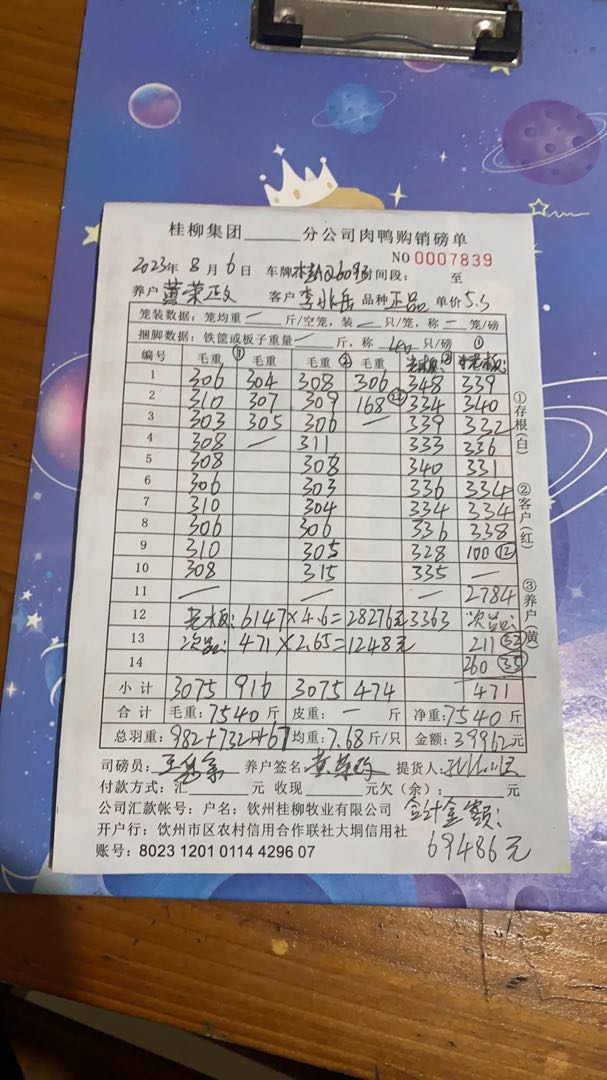 桂柳集团______分公司肉鸭购销磅单
NO 0007839
2023年 8 月 6 日 车牌 时间段: 至
养户 黄荣 客户 李 品种 正品 单价 5.3
笼装数据: 笼均重 — 斤/空笼, 装 — 只/笼, 称 — 笼/磅
捆脚数据: 铁筐或板子重量 — 斤, 称 40 只/磅 ①
编号 毛重 ① 毛重 毛重 ② 毛重 老水板: ② 老水板:
1 306 304 308 306 348 339
2 310 307 309 168 22 334 340
3 303 305 306 — 339 332
4 308 — 311 333 336
5 308 308 340 331
6 306 303 336 334
7 310 304 334 334
8 306 306 336 338
9 310 305 328 100 ⑫
10 308 315 335 —
11 — — — 2784
12 老水板: 6147×4.6=28276元 3363 次品:
13 次品: 471×2.65=1248元 211 32
14 260 35
小计 3075 916 3075 474 471
合计 毛重: 7540 斤 皮重: — 斤 净重: 7540 斤
总羽重: 982+732+67 均重: 7.68 斤/只 金额: 39962 元
司磅员: 养户签名: 黄荣 提货人:
付款方式: 汇______元 收现______元欠(余):______元
公司汇款帐号: 户名: 钦州桂柳牧业有限公司 合计金额:
开户行: 钦州市区农村信用合作联社大垌信用社 69486元
账号: 8023 1201 0114 4296 07
①存根(白) ②客户(红) ③养户(黄)